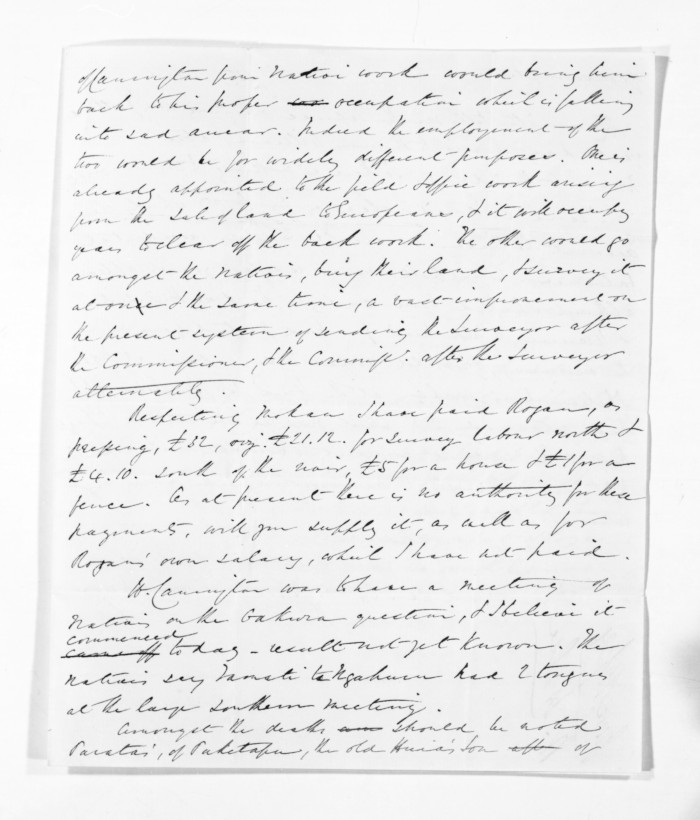 of Carrington from Native work would bring him
back to his proper occupation which is falling
into sad arrear. Indeed the employment of the
two would be for widely different purposes. One is
already appointed to the field & office work arising
from the sale of land to Europeans, & it will occupy
years to clear off the back work. The other would go
amongst the natives, buy their land, & survey it
at once & the same time, a vast improvement on
the present system of sending the Surveyor after
the Commissioner, & the Commissr. after the Surveyor
alternately.
Respecting Mokau I have paid Rogan, as
, £32, viz. £21.12. for survey labour north &
£4.10. south of the river, £5 for a house & £1 for a
fence. As at present there is no authority for these
payments, will you supply it, as well as for
Rogan's own salary, which I have not paid.
W. Carrington was to have a meeting of
Natives on the question, & I believe it
commenced
came off to day - result not yet known. The
natives say Tamati te Ngahuru had 2 tongues
at the large southern meeting.
Amongst the deaths should be noted
Parata's, of Puketapu, the old Huria's son of